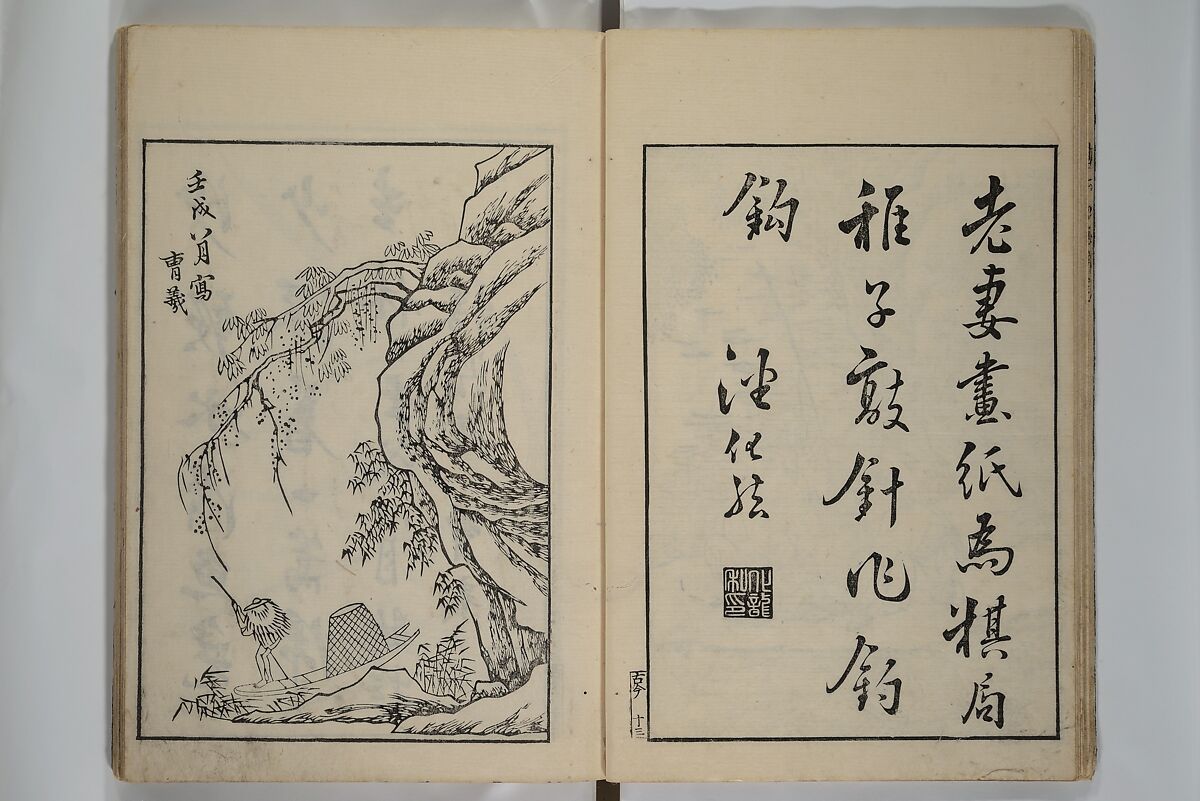 老妻畫紙為棋局
稚子敲針作釣
鈎
古今 十三
壬戌八月寫
曹羲